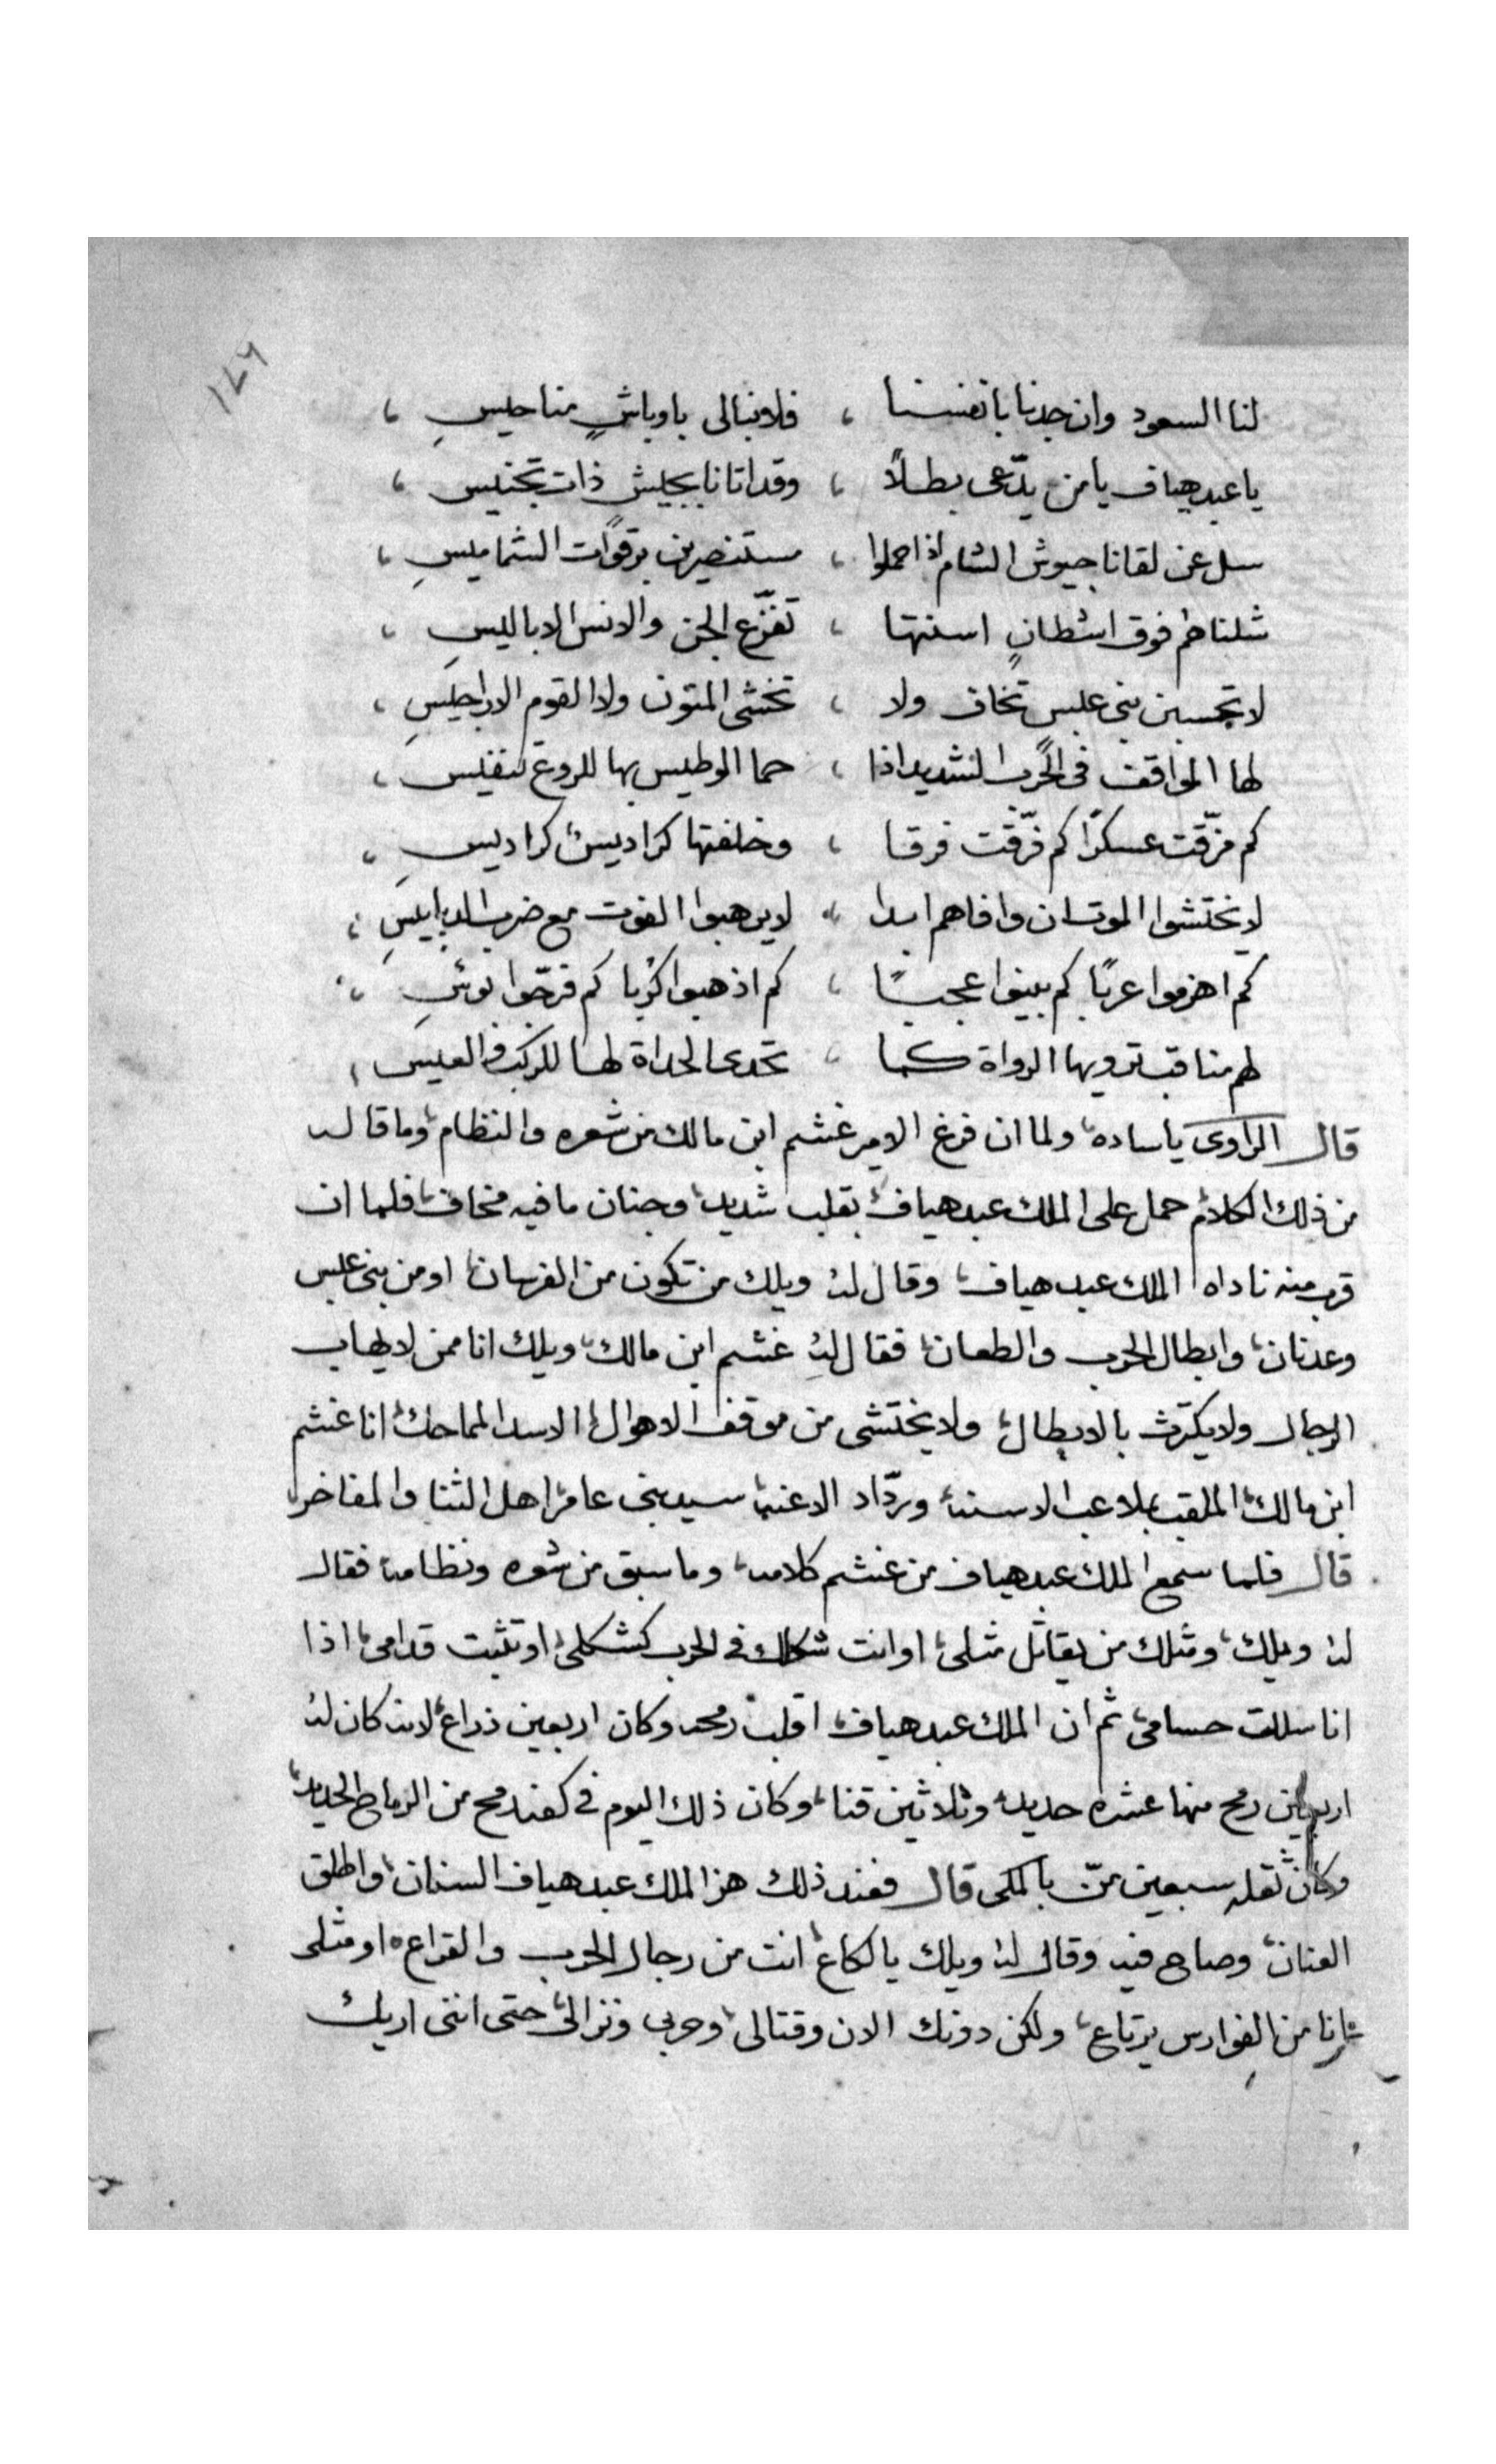 ١٤٦
لنا السعود وان جدنا بانفسنا ، فلا نبالى باوباشٍ مناحيسِ ،
يا عبد هياف يا من يدّعى بطلاً ، وقد اتانا بجيش ذات تجنيس ،
سل عن لقانا جيوش الشام اذا حملوا ، مستنصرين برقوات الشماميسِ ،
شلناهم فوق اشطانٍ اسنتها ، تفزّع الجن والانس الاباليسِ ،
لا تحسبن بنى عبس تخاف ولا ، تخشى المنون ولا القوم الاراجيسِ ،
لها المواقف فى الحرب الشديد اذا ، حما الوطيس بها للروع تنفيس ،
كم مزّقت عسكرًا كم فرّقت فرقا ، وخلفتها كراديسٌ كراديس ،
لا يختشوا الموت ان وافاهم ابدا ، لا يرهبوا الفوت مع ضرب الدبابيسِ ،
كم اهزموا عربًا كم بينوا عجبًا ، كم اذهبوا كربا كم فرّحوا بوسِ ،
لهم مناقب ترويها الرواة كما ، تحدى الحداة لها للركب والعيس ،
قال الراوى يا ساده، ولما ان فرغ الامير غشم ابن مالك من شعره والنظام، وما قاله
من ذلك الكلام، حمل على الملك عبد هياف، بقلب شديد، وجنان ما فيه مخاف، فلما ان
قرب منه ناداه الملك عبد هياف، وقال له، ويلك من تكون من الفرسان، او من بنى عبس
وعدنان، وابطال الحرب والطعان، فقال له، غشم ابن مالك، ويلك انا ممن لا يهاب
الرجال ولا يكترث بالابطال، ولا يختشى من موقف الاهوال، الاسد المماحك، انا غشم
ابن مالك، الملقب بملاعب الاسنه، وردّاد الاعنه، سيد بنى عامر، اهل الثنا والمفاخر،
قال فلما سمع الملك عبد هياف من غشم كلامه، وما سبق من شعره ونظامه، فقال
له ويلك، ومثلك من يقاتل مثلى، او انت شكلك فى الحرب كشكلى، او تثبت قدامى، اذا
انا سللت حسامى، ثم ان الملك عبد هياف، اقلب رمحه وكان اربعين ذراع، لانه كان له
اربعين رمح منها عشره حديد، وثلاثين قنا، وكان ذلك اليوم فى كفه رمح من الرماح الحديد،
وكان ثقله سبعين منّ بالمكى قال فعند ذلك هز الملك عبد هياف السنان، واطلق
العنان، وصاح فيه وقال له، ويلك يا لكاع، انت من رجال الحرب والقراع، او مثلى
انا من الفوارس يرتاع، ولكن دونك الان وقتالى، وحربى ونزالى، حتى اننى اريك